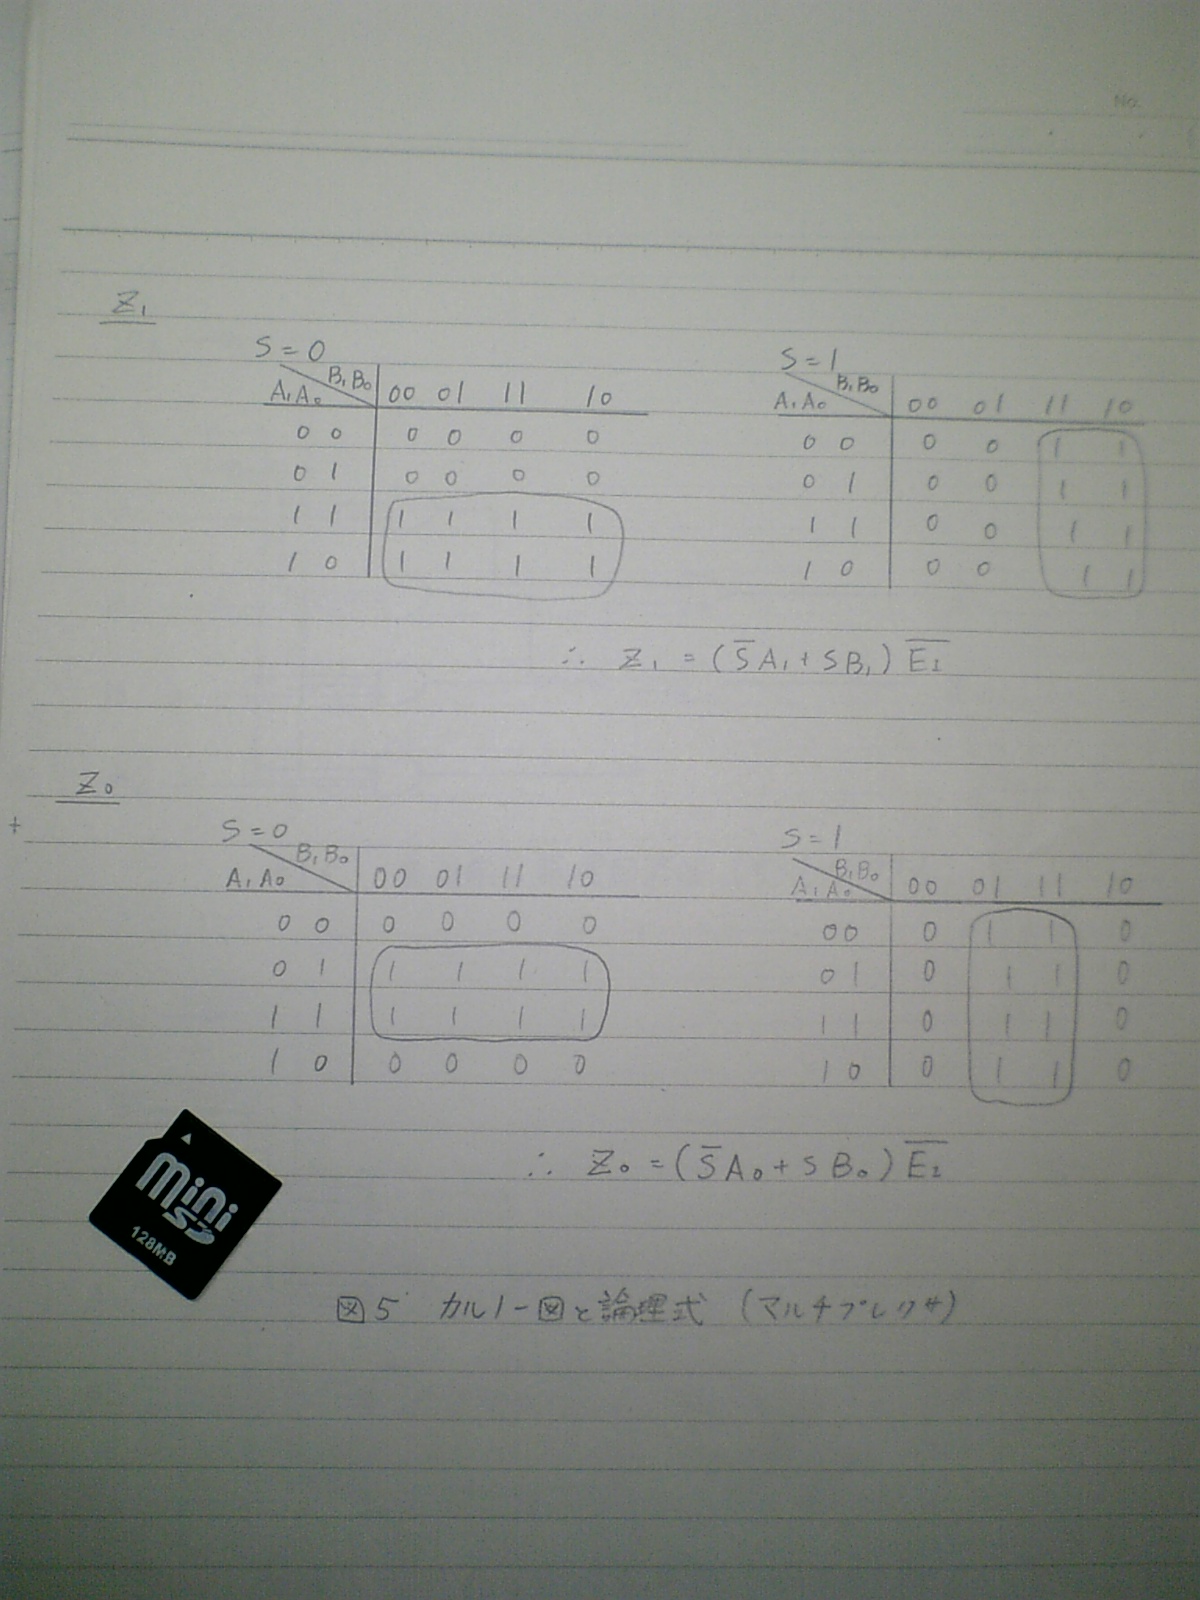 No.
Z₁
S=0
A₁A₀ \ B₁B₀ 00 01 11 10
0 0 0 0 0 0
0 1 0 0 0 0
1 1 1 1 1 1
1 0 1 1 1 1
S=1
A₁A₀ \ B₁B₀ 00 01 11 10
0 0 0 0 1 1
0 1 0 0 1 1
1 1 0 0 1 1
1 0 0 0 1 1
∴ Z₁ = (S̅A₁+SB₁)E̅₂̅
Z₀
S=0
A₁A₀ \ B₁B₀ 00 01 11 10
0 0 0 0 0 0
0 1 1 1 1 1
1 1 1 1 1 1
1 0 0 0 0 0
S=1
A₁A₀ \ B₁B₀ 00 01 11 10
00 0 1 1 0
01 0 1 1 0
11 0 1 1 0
10 0 1 1 0
∴ Z₀ = (S̅A₀+SB₀)E̅₂̅
mini
SD
128MB
図5 カルノー図と論理式 (マルチプレクサ)